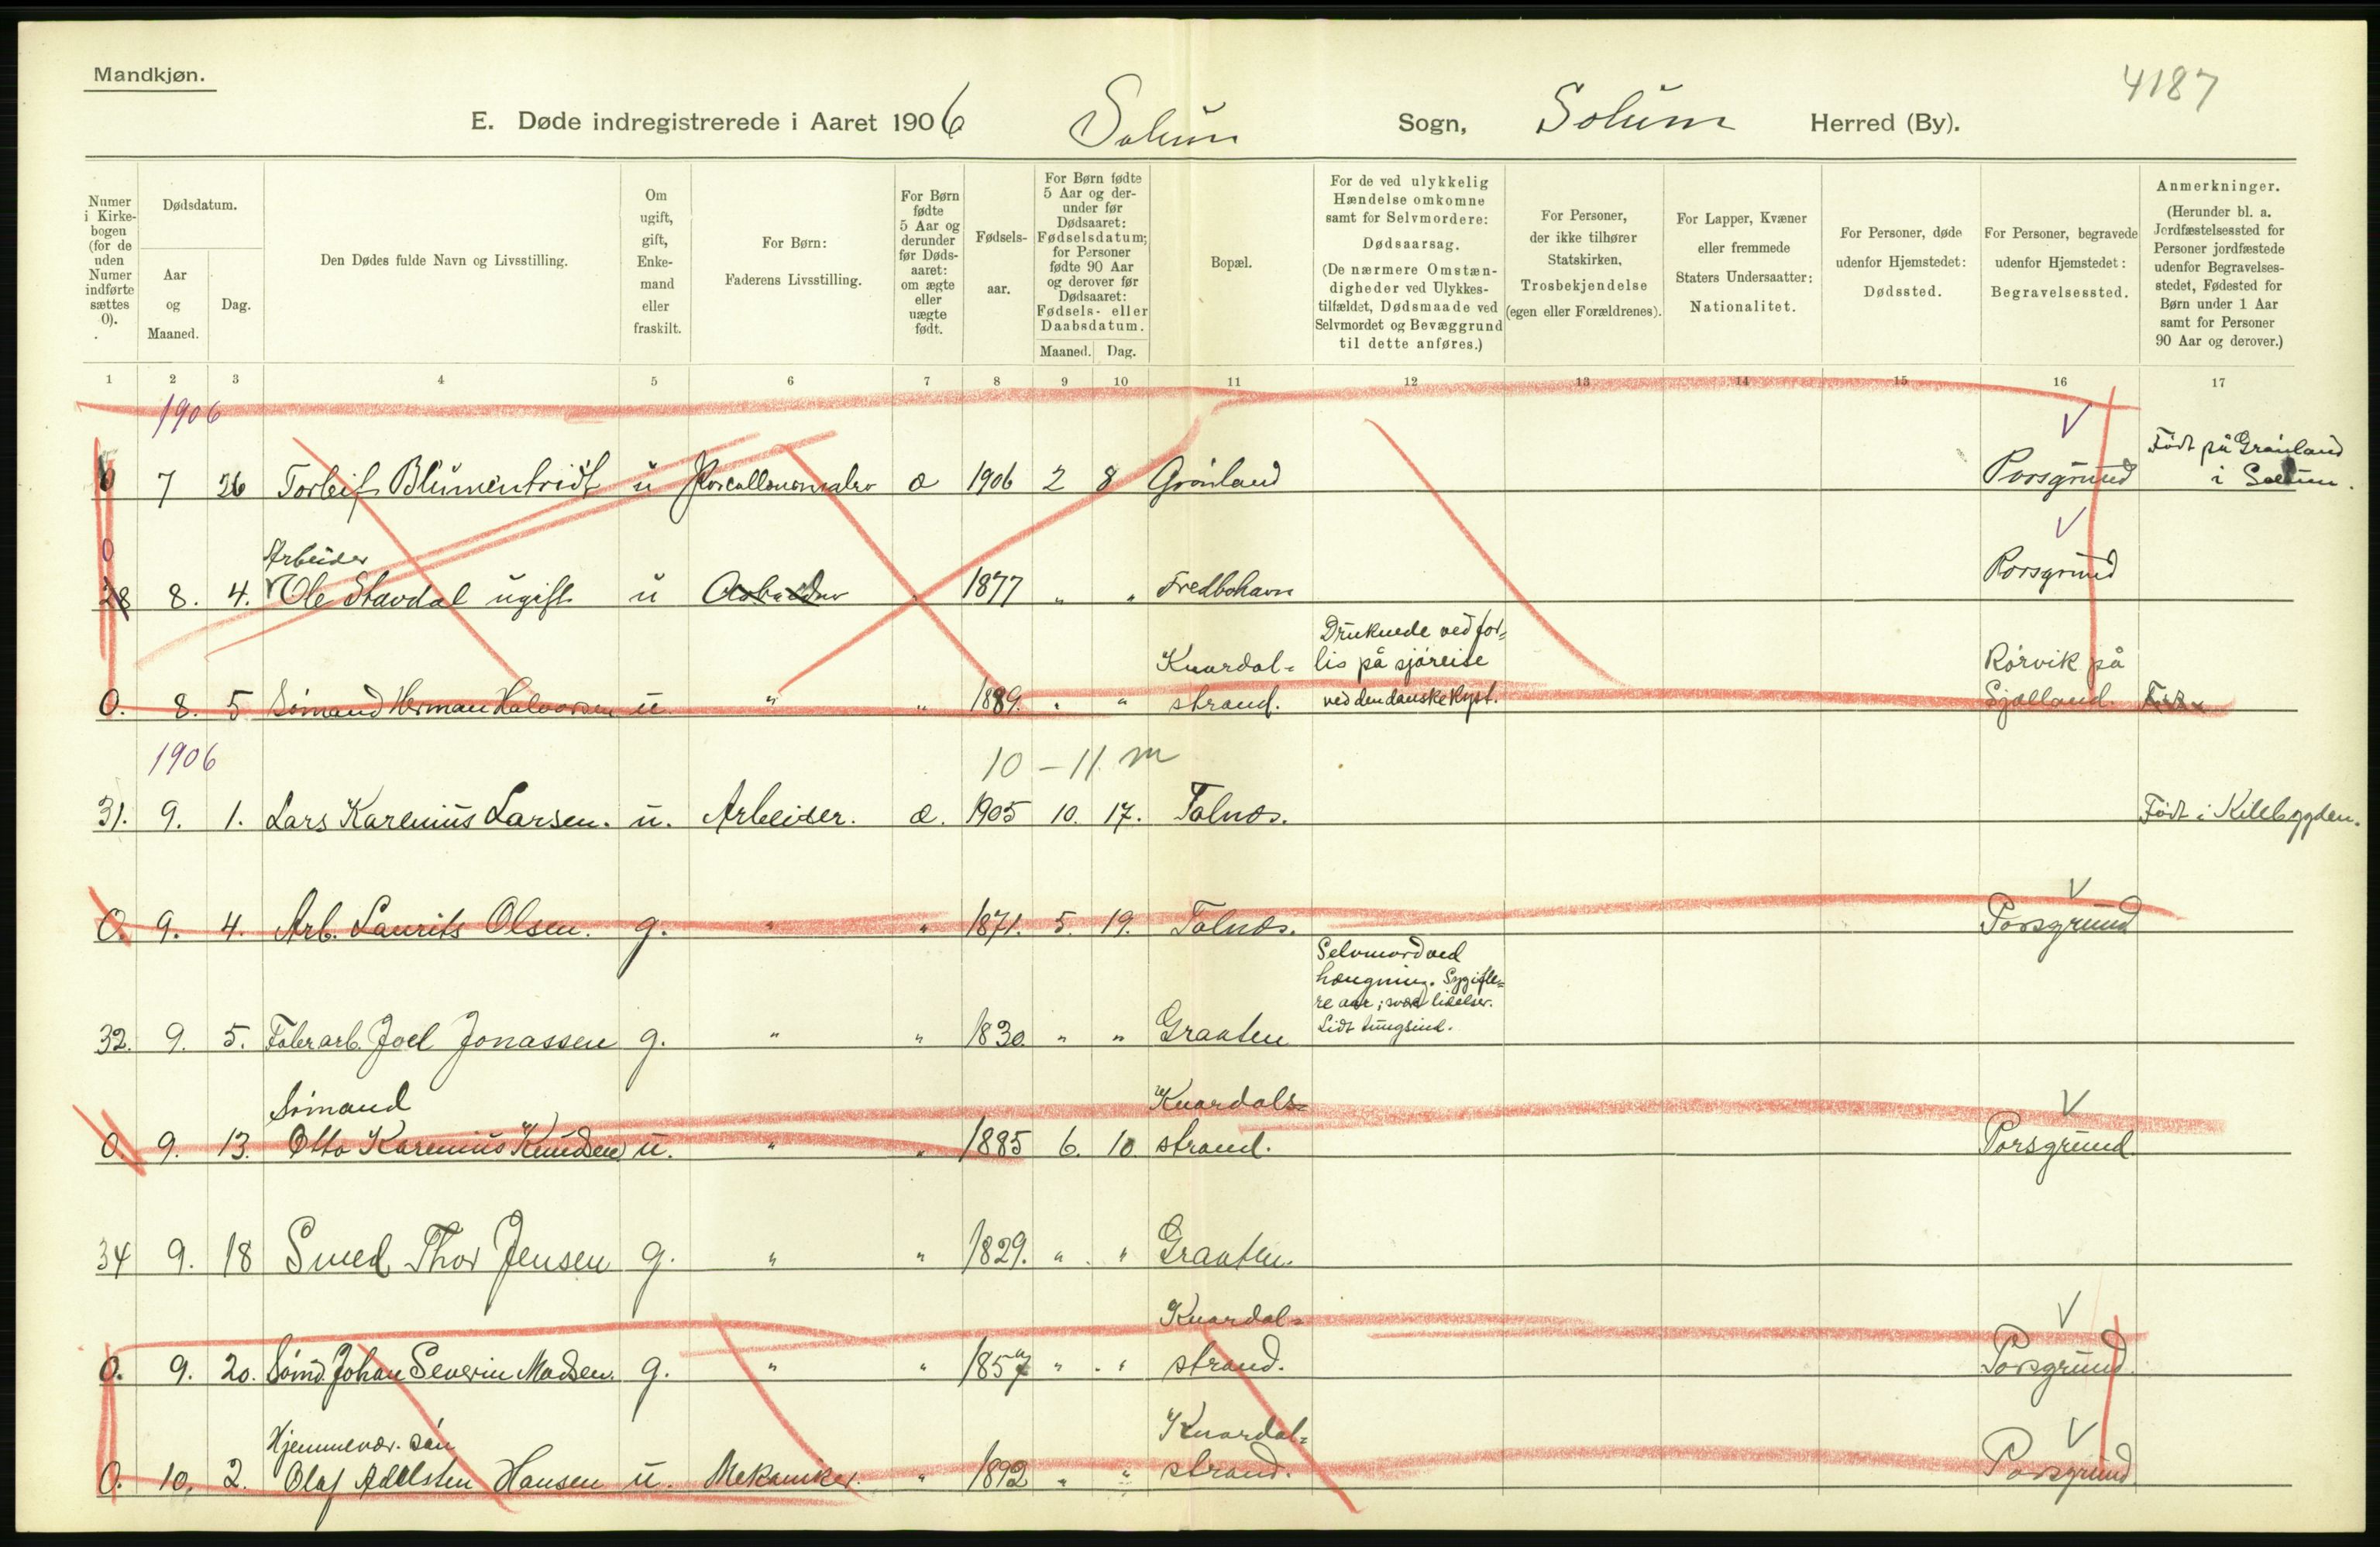 Mandkjøn.
4187
E. Døde indregistrerede i Aaret 1906 Solum Sogn, Solum Herred (By).
Numer i Kirke-bogen (for de uden Numer indførte sættes 0).
Dødsdatum.
Aar og Maaned.
Dag.
Den Dødes fulde Navn og Livsstilling.
Om ugift, gift, Enke-mand eller fraskilt.
For Børn: Faderens Livsstilling.
For Børn fødte 5 Aar og derunder før Døds-aaret: om ægte eller uægte født.
Fødsels-aar.
For Børn fødte 5 Aar og der-under før Dødsaaret: Fødselsdatum; for Personer fødte 90 Aar og derover før Dødsaaret: Fødsels- eller Daabsdatum.
Maaned. Dag.
Bopæl.
For de ved ulykkelig Hændelse omkomne samt for Selvmordere: Dødsaarsag. (De nærmere Omstæn-digheder ved Ulykkes-tilfældet, Dødsmaade ved Selvmordet og Bevæggrund til dette anføres.)
For Personer, der ikke tilhører Statskirken, Trosbekjendelse (egen eller Forældrenes).
For Lapper, Kvæner eller fremmede Staters Undersaatter: Nationalitet.
For Personer, døde udenfor Hjemstedet: Dødssted.
For Personer, begravede udenfor Hjemstedet: Begravelsessted.
Anmerkninger. (Herunder bl. a. Jordfæstelsessted for Personer jordfæstede udenfor Begravelses-stedet, Fødested for Børn under 1 Aar samt for Personer 90 Aar og derover.)
1 2 3 4 5 6 7 8 9 10 11 12 13 14 15 16 17
1906
Født på Grønland
7 26 Torleif Blumentridt u Porcellænsmaler æ 1906 2 8 Grønland Porsgrund i Solum.
0
Arbeider
28 8. 4. Ole Stavdal ugift u Arbeider " 1877 " " Fredbohavn Porsgrund
Druknede ved for-
Knardal- lis på sjøreise Rørvik på
0. 8. 5 Sømand Herman Halvorsen u. " " 1889. " " strand. ved den danske Kyst. Sjælland.
1906 10 - 11 m
31. 9. 1. Lars Karenius Larsen. u. Arbeider. æ. 1905 10. 17. Tolnæs. Født i Kilebygden.
0. 9. 4. Arb. Laurits Olsen. g. " " 1871. 5. 19. Tolnæs. Porsgrund
Selvmord ved
hængning. Syg i fle-
re aar; svære lidelser.
Lidt tungsind.
32. 9. 5. Faberarb. Joel Jonassen g. " " 1830. " " Graaten
Sømand Knardals-
0. 9. 13. Otto Karenius Knudsen u. " " 1885 6. 10. strand. Porsgrund.
34 9. 18 Smed Thor Jensen g. " " 1829. " " Graaten.
Knardal-
0. 9. 20. Sømd. Johan Severin Madsen. g. " " 1857 " " strand. Porsgrund.
Hjemmevær. søn Knardal-
0. 10. 2. Olaf Adelsten Hansen u. Mekaniker. " 1892 " " strand. Porsgrund.